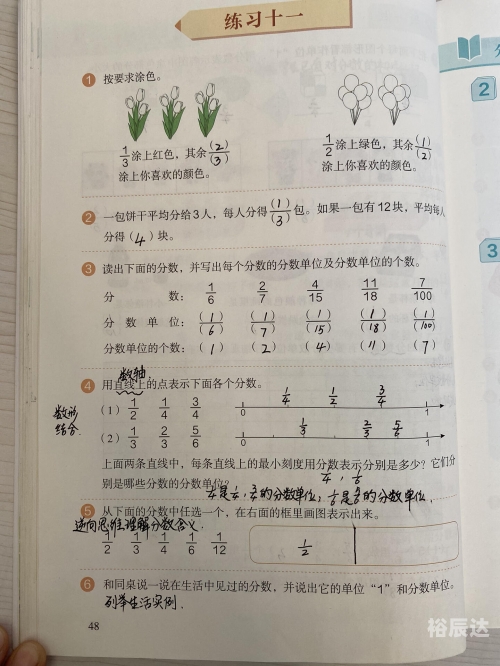 练习十一
1 按要求涂色。
1/3 涂上红色，其余 (2)/(3)
涂上你喜欢的颜色。
1/2 涂上绿色，其余 (1)/(2)
涂上你喜欢的颜色。
2 一包饼干平均分给3人，每人分得 (1)/(3) 包。如果一包有12块，平均每人
分得（4）块。
3 读出下面的分数，并写出每个分数的分数单位及分数单位的个数。
分 数： 1/6 2/7 4/15 11/18 7/100
分 数 单 位： (1)/(6) (1)/(7) (1)/(15) (1)/(18) (1)/(100)
分数单位的个数：（1）（2）（4）（11）（7）
数轴
4 用直线上的点表示下面各个分数。
数形
结合
（1） 1/2 1/4 3/4
0 1/4 1/2 3/4 1
（2） 1/3 2/3 5/6
0 1/3 2/3 5/6 1
上面两条直线中，每条直线上的最小刻度用分数表示分别是多少？它们分
1/4，1/6
别是哪些分数的分数单位？
的分数单位，1/6是 的分数单位.
5 从下面的分数中任选一个，在右面的框里画图表示出来。
逆向思维理解分数含义.
1/2 1/3 1/4 1/6 1/12
1/2
6 和同桌说一说在生活中见过的分数，并说出它的单位“1”和分数单位。
列举生活实例.
48
2
3
裕辰达